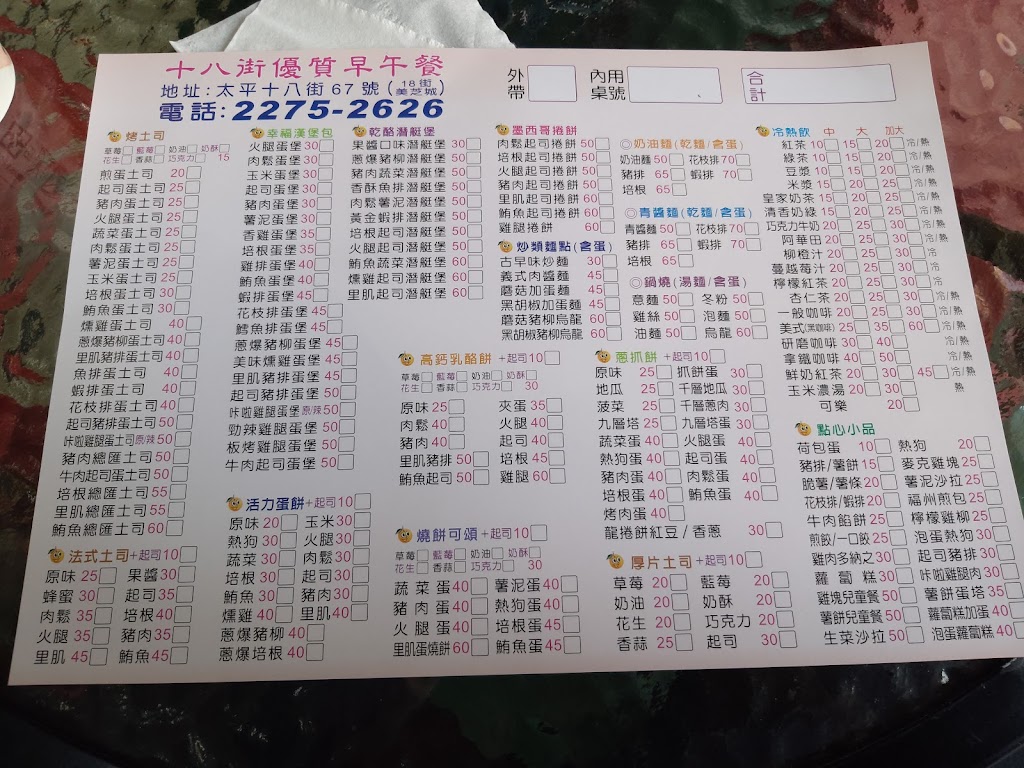 十八街優質早午餐
地址:太平十八街67號(18街美芝城)
電話:2275-2626
外帶
內用桌號
合計
烤土司
草莓 藍莓 奶油 奶酥
花生 香蒜 巧克力 15
煎蛋土司 20
起司蛋土司 25
豬肉蛋土司 25
火腿蛋土司 25
蔬菜蛋土司 25
肉鬆蛋土司 25
薯泥蛋土司 25
玉米蛋土司 25
培根蛋土司 30
鮪魚蛋土司 30
燻雞蛋土司 40
蔥爆豬柳蛋土司 40
里肌豬排蛋土司 40
魚排蛋土司 40
蝦排蛋土司 40
花枝排蛋土司 40
起司豬排蛋土司 50
咔啦雞腿蛋土司原/辣 50
豬肉總匯土司 50
牛肉起司蛋土司 50
培根總匯土司 55
里肌總匯土司 55
鮪魚總匯土司 60
法式土司+起司10
原味 25 果醬 30
蜂蜜 30 起司 35
肉鬆 35 培根 40
火腿 35 豬肉 35
里肌 45 鮪魚 45
幸福漢堡包
火腿蛋堡 30
肉鬆蛋堡 30
玉米蛋堡 30
起司蛋堡 30
豬肉蛋堡 30
薯泥蛋堡 30
香雞蛋堡 35
培根蛋堡 35
雞排蛋堡 40
鮪魚蛋堡 40
蝦排蛋堡 45
花枝排蛋堡 45
鱈魚排蛋堡 45
蔥爆豬柳蛋堡 45
美味燻雞蛋堡 45
里肌豬排蛋堡 45
起司豬排蛋堡 50
咔啦雞腿蛋堡原/辣 50
勁辣雞腿蛋堡 50
板烤雞腿蛋堡 50
牛肉起司蛋堡 50
活力蛋餅+起司10
原味 20 玉米 30
熱狗 30 火腿 30
蔬菜 30 肉鬆 30
培根 30 起司 30
鮪魚 30 豬肉 30
燻雞 40 里肌 40
蔥爆豬柳 40
蔥爆培根 40
乾酪潛艇堡
果醬口味潛艇堡 30
蔥爆豬柳潛艇堡 50
豬肉蔬菜潛艇堡 50
香酥魚排潛艇堡 50
肉鬆薯泥潛艇堡 50
黃金蝦排潛艇堡 50
培根起司潛艇堡 50
火腿起司潛艇堡 50
鮪魚蔬菜潛艇堡 60
燻雞起司潛艇堡 60
里肌起司潛艇堡 60
高鈣乳酪餅+起司10
草莓 藍莓 奶油 奶酥
花生 香蒜 巧克力 30
原味 25 夾蛋 35
肉鬆 40 火腿 40
豬肉 40 起司 40
里肌豬排 50 培根 45
鮪魚起司 50 雞腿 60
燒餅可頌+起司10
草莓 藍莓 奶油 奶酥
花生 香蒜 巧克力 30
蔬菜蛋 40 薯泥蛋 40
豬肉蛋 40 熱狗蛋 40
火腿蛋 40 培根蛋 45
里肌蛋燒餅 60 鮪魚蛋 45
墨西哥捲餅
肉鬆起司捲餅 50
培根起司捲餅 50
火腿起司捲餅 50
豬肉起司捲餅 50
里肌起司捲餅 60
鮪魚起司捲餅 60
雞腿捲餅 60
炒類麵點(含蛋)
古早味炒麵 30
義式肉醬麵 45
蘑菇加蛋麵 45
黑胡椒加蛋麵 45
蘑菇豬柳烏龍 60
黑胡椒豬柳烏龍 60
◎奶油麵(乾麵/含蛋)
奶油麵 50 花枝排 70
豬排 65 蝦排 70
培根 65
◎青醬麵(乾麵/含蛋)
青醬麵 50 花枝排 70
豬排 65 蝦排 70
培根 65
◎鍋燒(湯麵/含蛋)
意麵 50 冬粉 50
雞絲 50 泡麵 50
油麵 50 烏龍 60
蔥抓餅+起司10
原味 25 抓餅蛋 30
地瓜 25 千層地瓜 30
菠菜 25 千層蔥肉 30
九層塔 25 九層塔蛋 30
蔬菜蛋 40 火腿蛋 40
熱狗蛋 40 起司蛋 40
豬肉蛋 40 肉鬆蛋 40
培根蛋 40 鮪魚蛋 40
烤肉蛋 40
龍捲餅紅豆/香蔥 30
厚片土司+起司10
草莓 20 藍莓 20
奶油 20 奶酥 20
花生 20 巧克力 20
香蒜 25 起司 30
冷熱飲 中 大 加大
紅茶 10 15 20 冷/熱
綠茶 10 15 20 冷/熱
豆漿 10 15 20 冷/熱
米漿 15 20 25 冷/熱
皇家奶茶 15 20 25 冷/熱
清香奶綠 15 20 25 冷/熱
巧克力牛奶 20 25 30 冷/熱
阿華田 20 25 30 冷/熱
柳橙汁 20 25 30 冷
蔓越莓汁 20 25 30 冷
檸檬紅茶 20 25 30 冷
杏仁茶 20 25 30 冷/熱
一般咖啡 20 25 30 冷/熱
美式(黑咖啡) 25 35 60 冷/熱
研磨咖啡 30 40 冷/熱
拿鐵咖啡 40 50 冷/熱
鮮奶紅茶 20 30 45 冷/熱
玉米濃湯 20 30 熱
可樂 20
點心小品
荷包蛋 10 熱狗 20
豬排/薯餅 15 麥克雞塊 25
脆薯/薯條 20 薯泥沙拉 25
花枝排/蝦排 20 福州煎包 25
牛肉餡餅 25 檸檬雞柳 25
煎餃/一口餃 25 泡蛋熱狗 30
雞肉多納之 30 起司豬排 30
蘿蔔糕 30 咔啦雞腿肉 30
雞塊兒童餐 50 薯餅蛋塔 35
薯餅兒童餐 50 蘿蔔糕加蛋 40
生菜沙拉 50 泡蛋蘿蔔糕 40